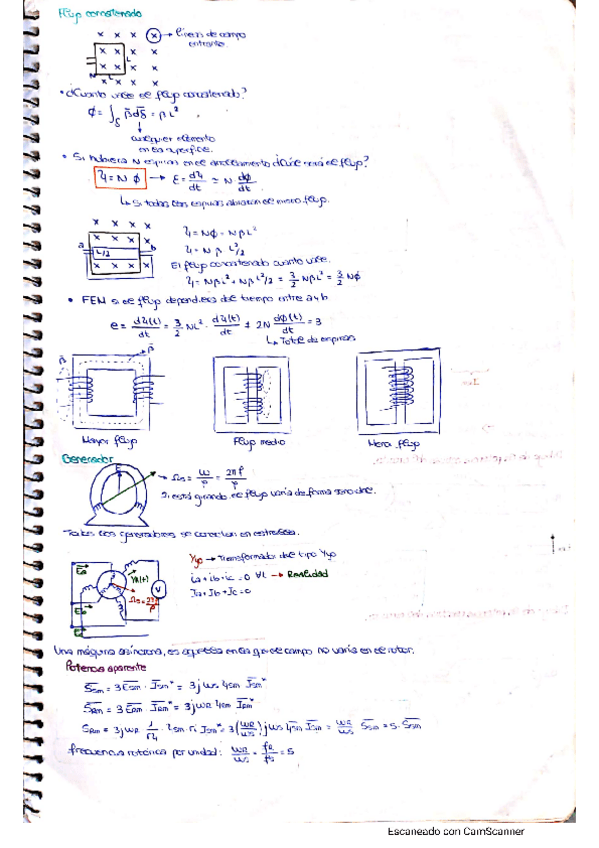 Flujo concatenado
x x x x → Líneas de campo
entrante.
x x x x
x x x x
N L x x
• ¿Cuánto vale el flujo concatenado?
ϕ = ∫s β̄ ds̄ = β L²
cualquier elemento
en la superficie.
• Si hubiera N espiras en el arrollamiento ¿cuál será el flujo?
Ψ = N ϕ → ε = dΨ/dt = N dϕ/dt
↳ Si todas las espiras abarcan el mismo flujo.
x x x x
a L/2 b
Ψ = Nϕ = NβL²
Ψ = N β L²/2
El flujo concatenado cuanto vale.
Ψ = NβL² + NβL²/2 = 3/2 NβL² = 3/2 Nϕ
• FEM si el flujo dependiera del tiempo entre a y b
e = dΨ(t)/dt = 3/2 NL² · dΨ(t)/dt ≠ 2N dϕ(t)/dt = 3
↳ Total de espiras
β̄ β̄
Mayor flujo Flujo medio Menor flujo
Generador
→ Ωs = ω/p = 2πf/p
Si está girando el flujo varía de forma senoidal.
Todos los generadores se conectan en estrella.
Yyo → Transformador del tipo Yyo
ia + ib + ic = 0 ∀t → Realidad
Ia + Ib + Ic = 0
Una máquina asíncrona, es aquella en la que el campo no varía en el rotor.
Potencia aparente
frecuencia rotórica por unidad: ωR/ωs = fR/fs = s
Escaneado con CamScanner